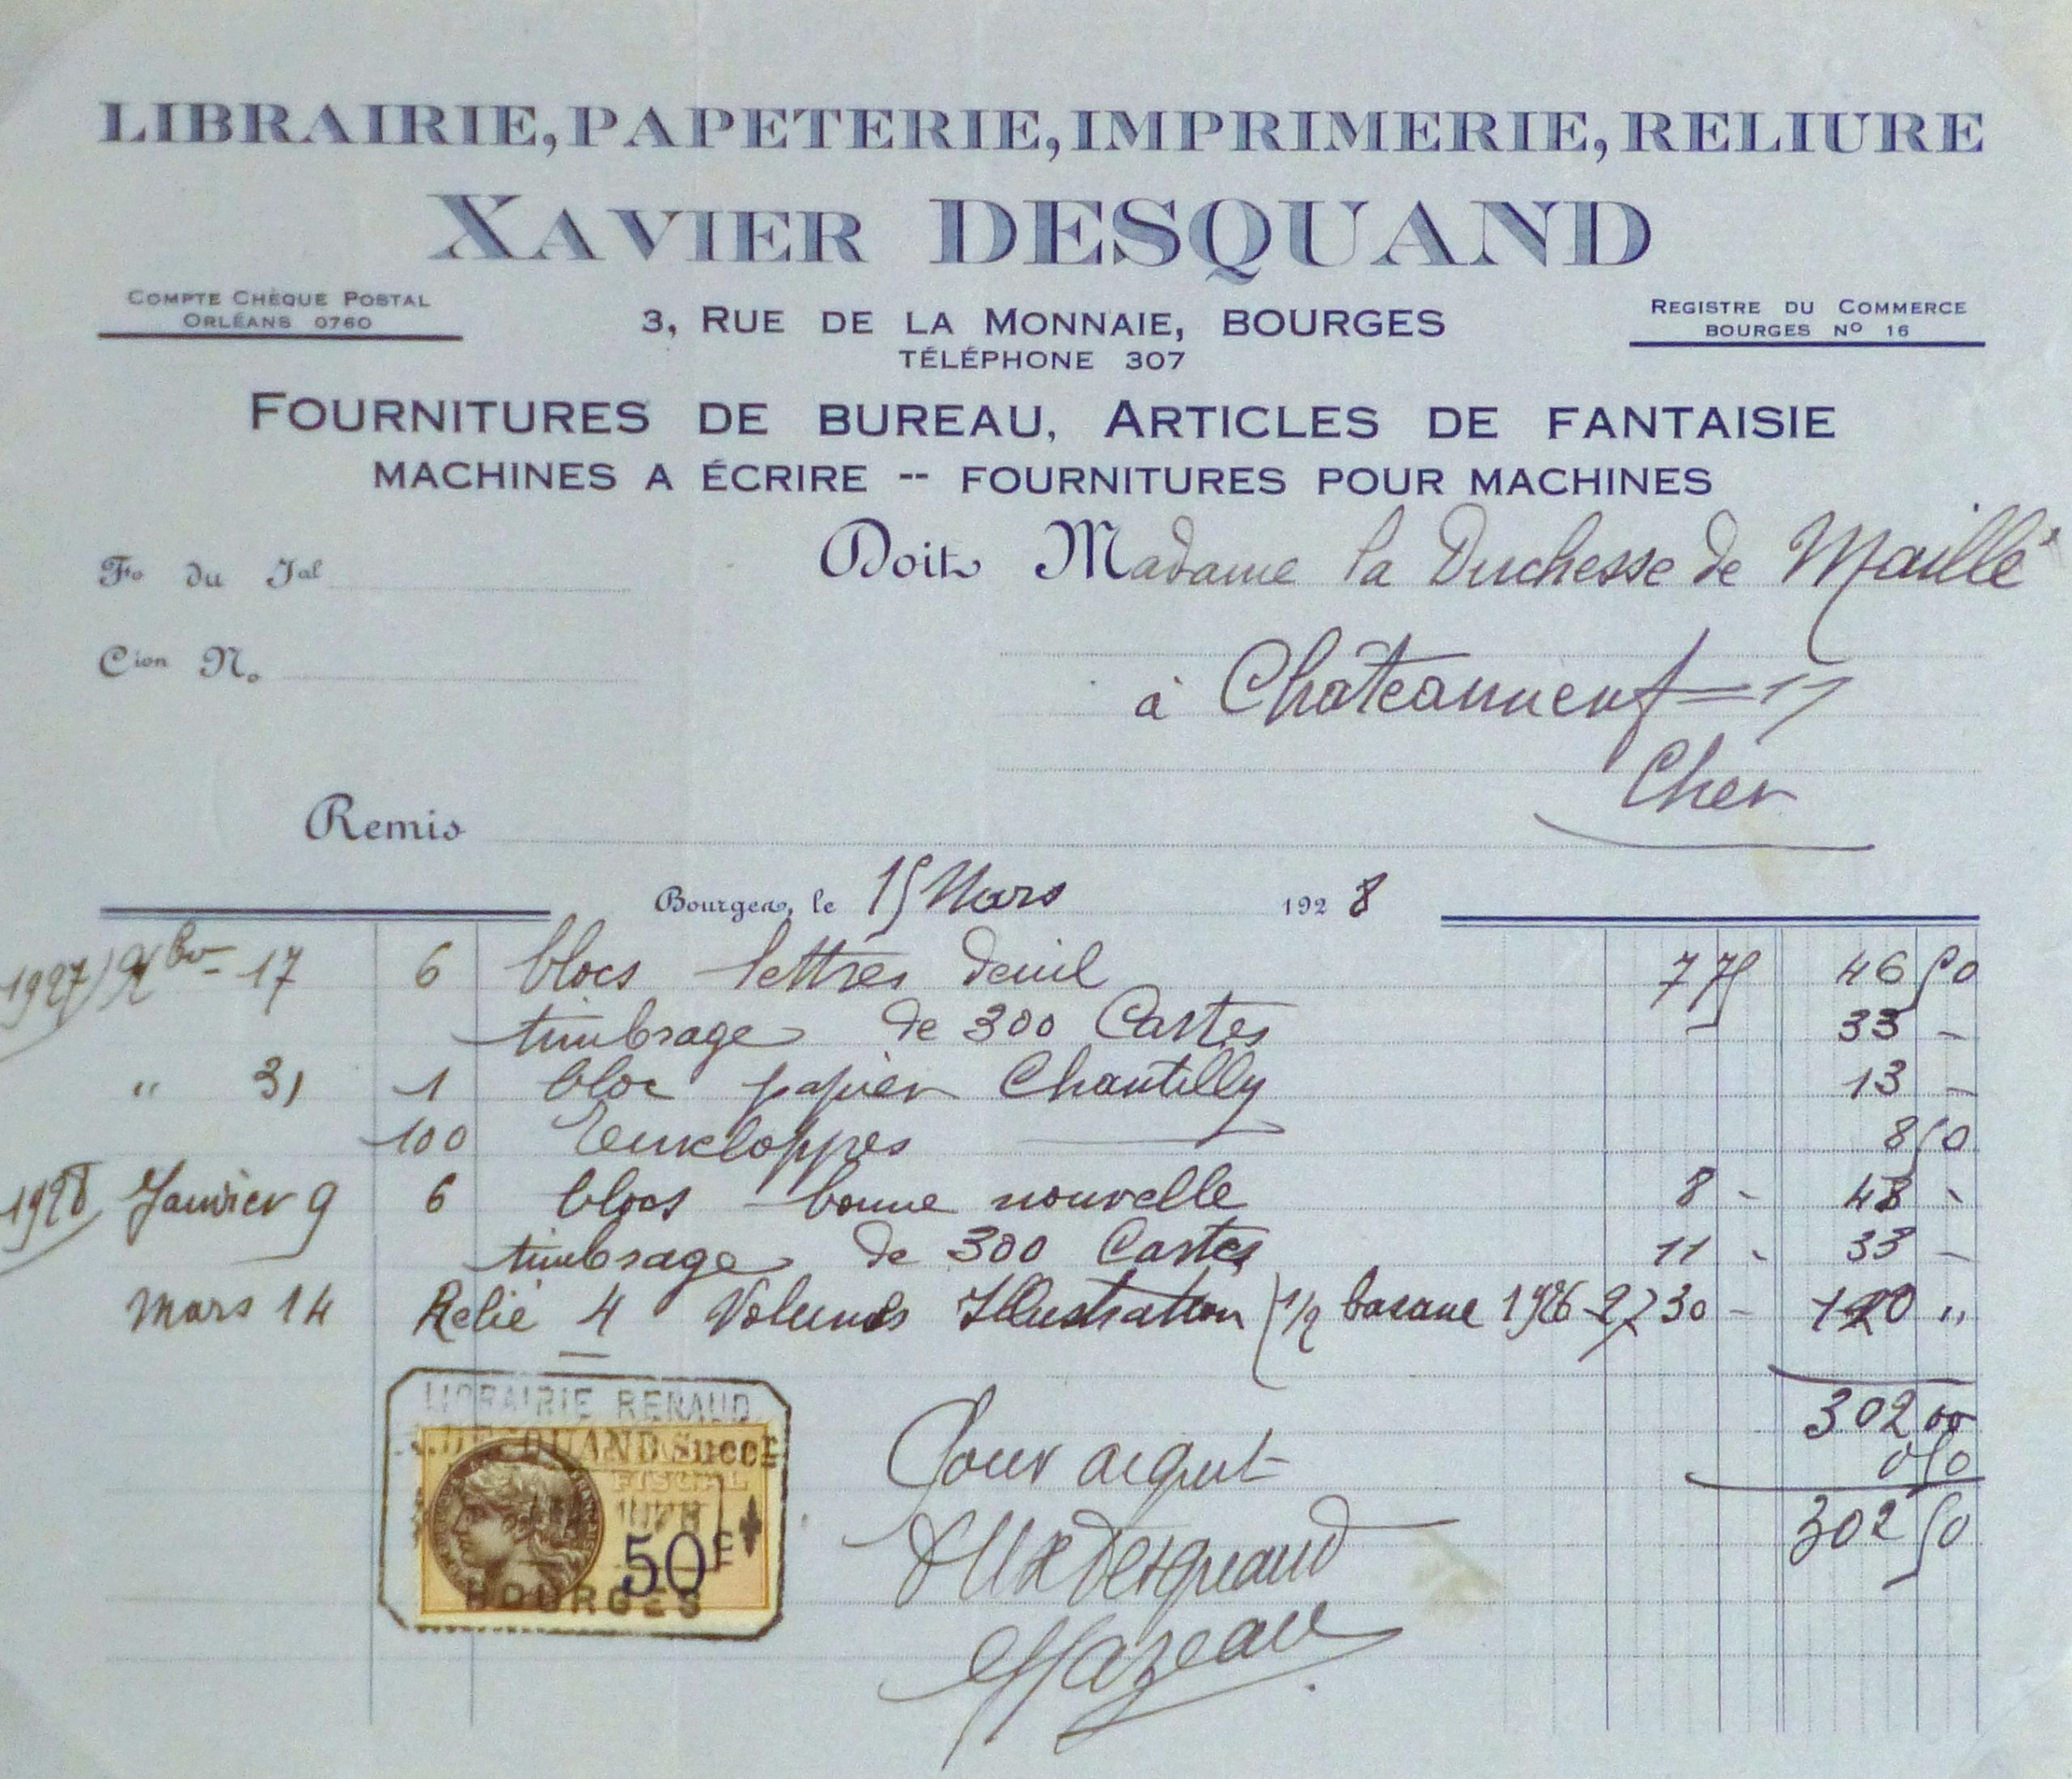 LIBRAIRIE, PAPETERIE, IMPRIMERIE, RELIURE
XAVIER DESQUAND
COMPTE CHÈQUE POSTAL
ORLÉANS 0760
3, RUE DE LA MONNAIE, BOURGES
TÉLÉPHONE 307
REGISTRE DU COMMERCE
BOURGES No 16
FOURNITURES DE BUREAU, ARTICLES DE FANTAISIE
MACHINES A ÉCRIRE -- FOURNITURES POUR MACHINES
Fo du Jal
Doit Madame la Duchesse de Maillé
Cion No
à Châteauneuf
Cher
Remis
Bourges, le 15 Mars 1928
1927 Xbre 17 6 blocs lettres deuil 7 75 46 50
timbrage de 300 Cartes 33 -
" 31 1 bloc papier Chantilly 13 -
100 Enveloppes 8 50
1928 Janvier 9 6 blocs bonne nouvelle 8 - 48 -
timbrage de 300 Cartes 11 - 33 -
Mars 14 Relié 4 Volumes Illustration 1/2 basane 1926-27 30 - 120 "
302 00
0 50
302 50
LIBRAIRIE RENAUD
X. DESQUAND Succr
FISCAL
50c
BOURGES
Pour acquit
Desquand